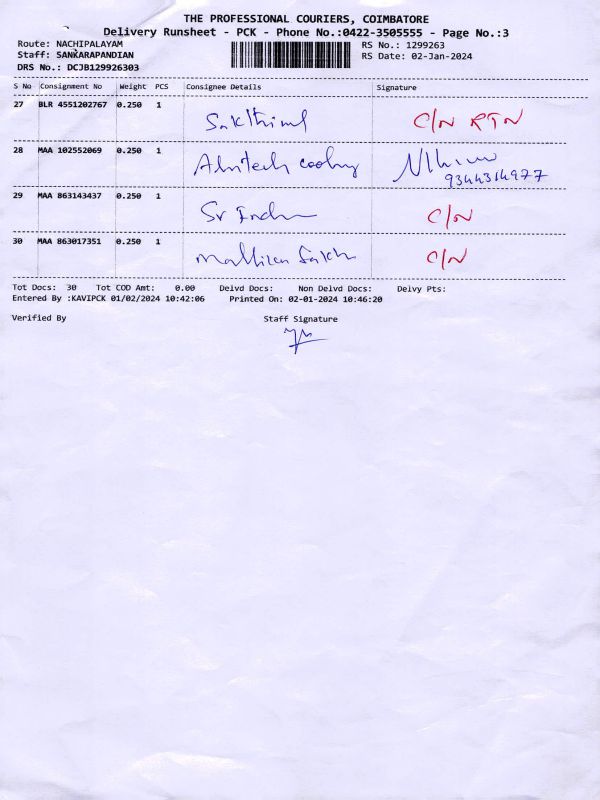 THE PROFESSIONAL COURIERS, COIMBATORE
Delivery Runsheet - PCK - Phone No.:0422-3505555 - Page No.:3
Route: NACHIPALAYAM RS No.: 1299263
Staff: SANKARAPANDIAN RS Date: 02-Jan-2024
DRS No.: DCJB129926303
S No Consignment No Weight PCS Consignee Details Signature
27 BLR 4551202767 0.250 1 C/N RTN
28 MAA 102552069 0.250 1
9344314977
29 MAA 863143437 0.250 1 C/N
30 MAA 863017351 0.250 1 C/N
Tot Docs: 30 Tot COD Amt: 0.00 Delvd Docs: Non Delvd Docs: Delvy Pts:
Entered By :KAVIPCK 01/02/2024 10:42:06 Printed On: 02-01-2024 10:46:20
Verified By Staff Signature